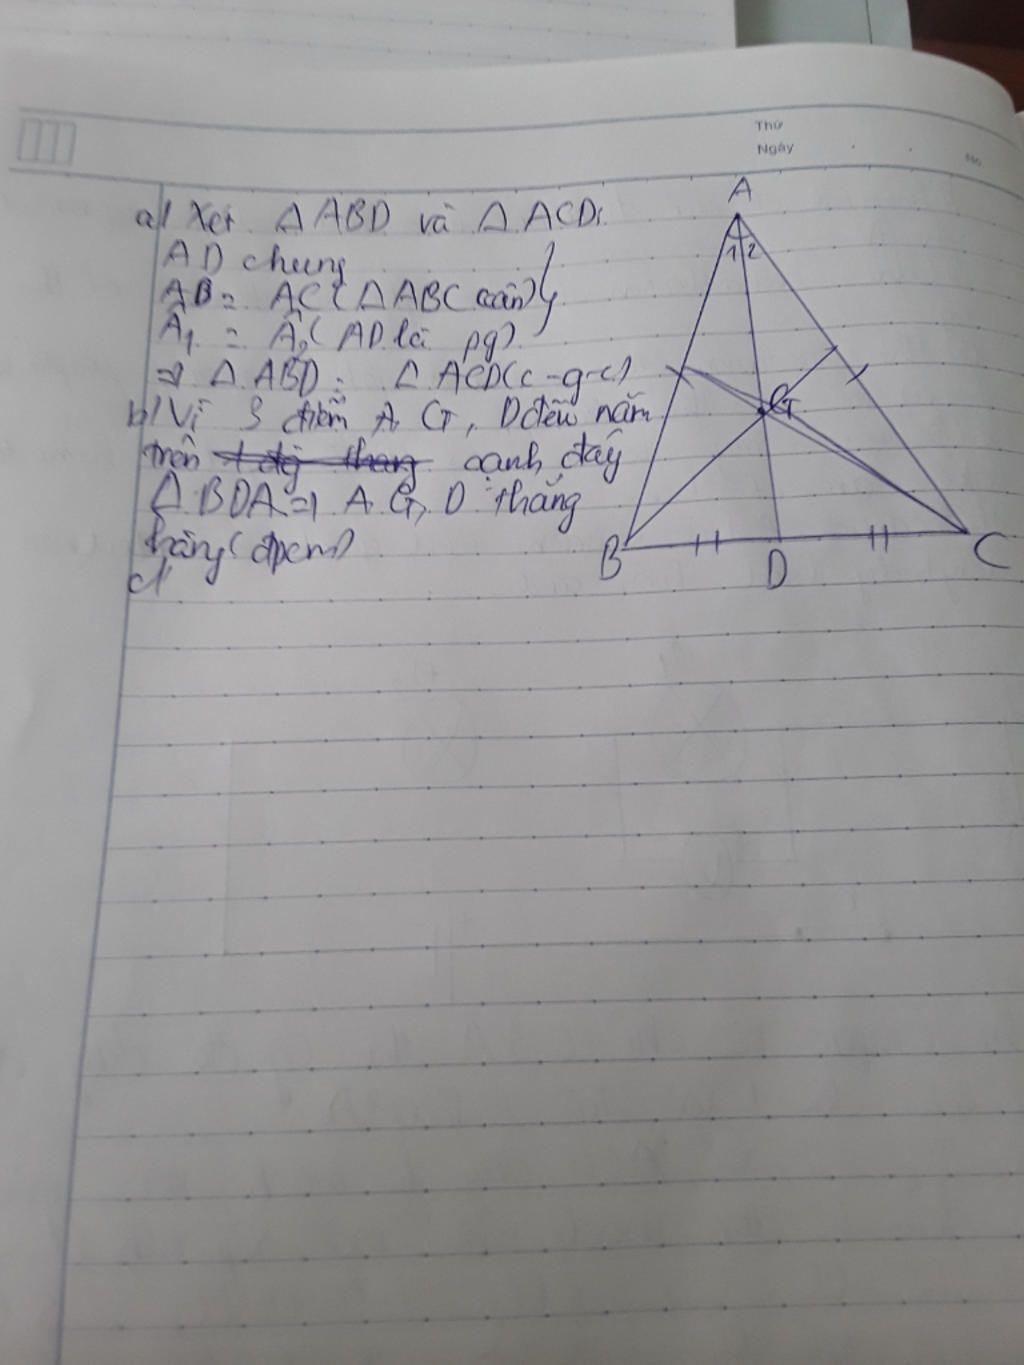 Thứ
Ngày
No
a) Xét Δ ABD và Δ ACD:
AD chung
AB = AC (Δ ABC cân)
Â1 = Â2 (AD là pg)
⇒ Δ ABD = Δ ACD (c-g-c)
b) Vì 3 điểm A, G, D đều nằm
trên cạnh đáy
Δ BDA ⇒ A, G, D thẳng
hàng (đpcm)
c)
A
1 2
G
B
D
C